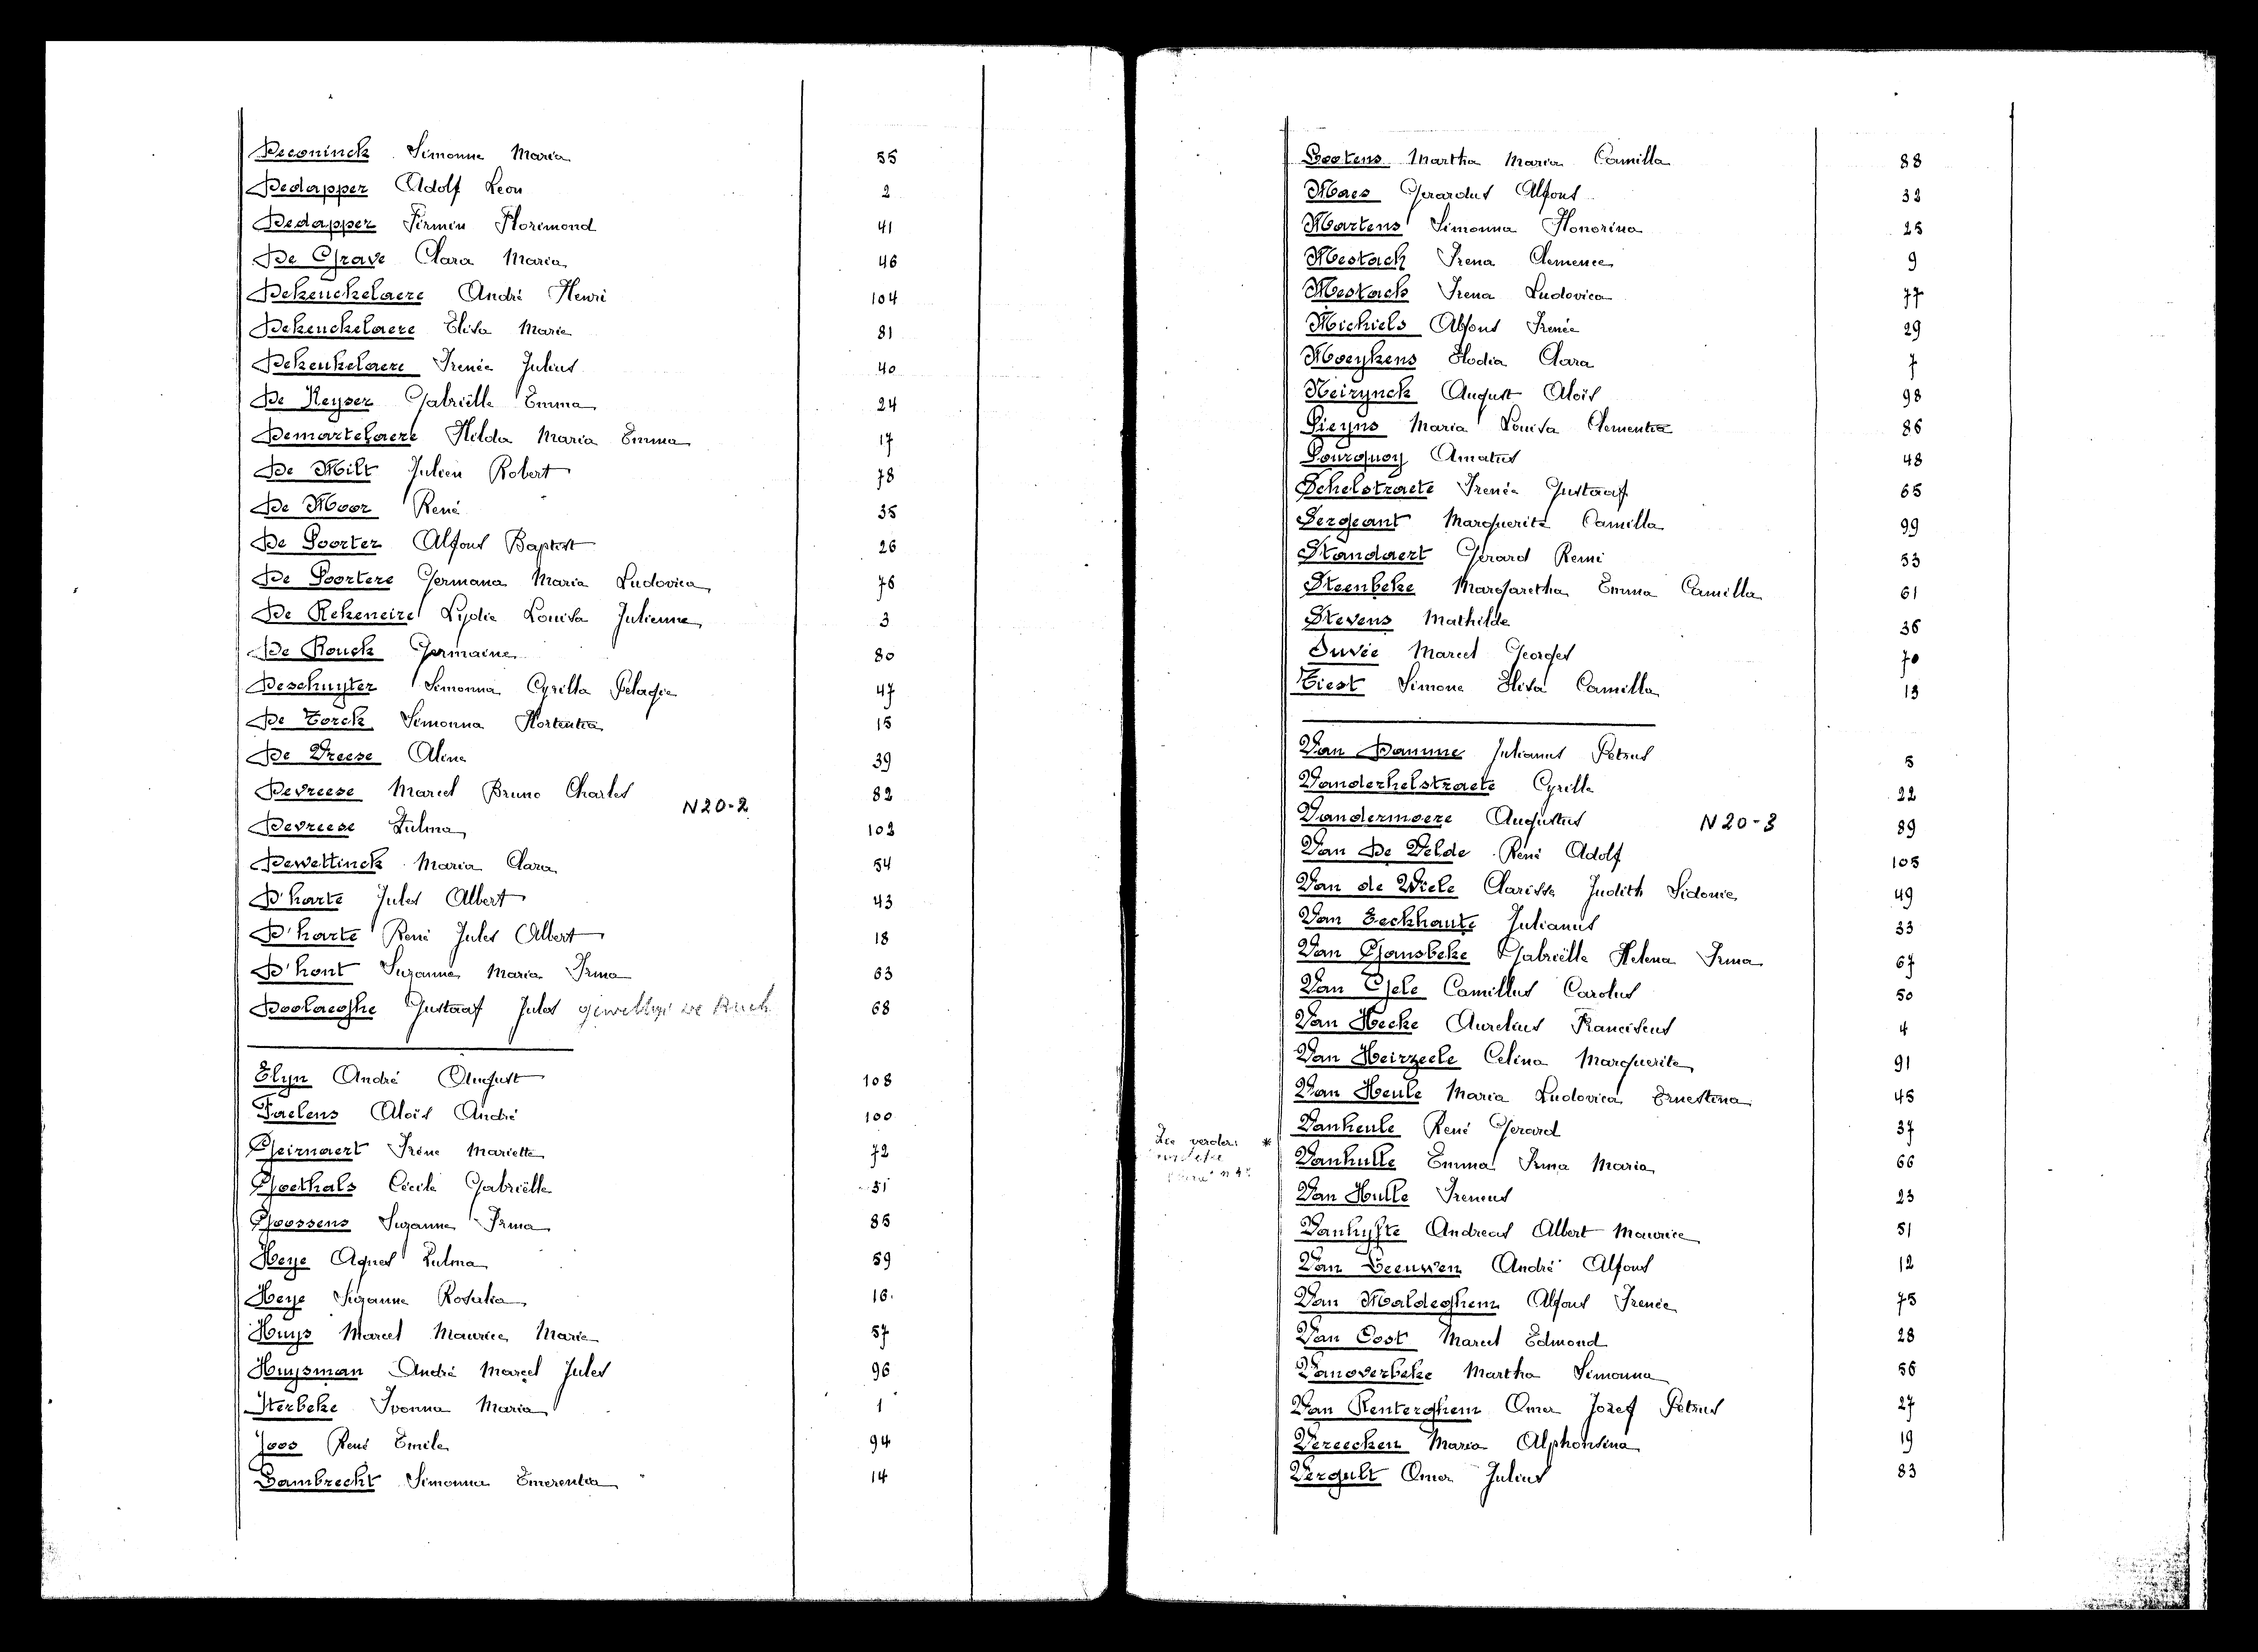 Deconinck Simonne Maria 55
Dedapper Adolf Leon 2
Dedapper Firmin Florimond 41
De Grave Clara Maria 46
Dekeuckelaere André Henri 104
Dekeuckelaere Elisa Marie 81
Dekeukelaere Irenée Julius 40
De Keyser Gabriëlle Emma 24
Demartelaere Hilda Maria Emma 17
De Milt Julien Robert 78
De Moor René 35
De Poorter Alfons Baptist 26
De Poortere Germana Maria Ludovica 76
De Rekeneire Lydie Louisa Julienne 3
De Rouck Germaine 80
Deschuyter Simonna Cyrilla Pelagie 47
De Torck Simonna Hortentia 15
De Vreese Aline 39
Devreese Marcel Bruno Charles 82
N20-2
Devreese Zulma 103
Dewettinck Maria Clara 54
D'harte Jules Albert 43
D'harte René Jules Albert 18
D'hont Suzanne Maria Irma 63
Doolaeghe Gustaaf Jules 68
Elyn André August 108
Faelens Aloïs André 100
Geirnaert Irène Mariette 72
Goethals Cécile Gabriëlle 31
Goossens Suzanne Irma 85
Heye Agnes Zulma 59
Heye Suzanne Rosalia 16
Huys Marcel Maurice Marie 57
Huysman André Marcel Jules 96
Iterbeke Ivonna Maria 1
Joos René Emile 94
Lambrecht Simonna Emerentia 14
Lootens Martha Maria Camilla 88
Maes Gerardus Alfons 32
Martens Simonna Honorina 25
Mestach Irena Clemence 9
Mestach Irena Ludovica 77
Michiels Alfons Irenée 29
Moeykens Elodia Clara 7
Neirynck August Aloïs 98
Pieyns Maria Louisa Clementia 86
Pourquoy Amatus 48
Schelstraete Irenée Gustaaf 65
Sergeant Marguerite Camilla 99
Standaert Gerard Remi 53
Steenbeke Margaretha Emma Camilla 61
Stevens Mathilde 36
Suvée Marcel Georges 70
Tiest Simone Elisa Camilla 13
Van Damme Julianus Petrus 5
Vanderhelstraete Cyrille 22
Vandermoere Augustus N20-3 89
Van De Velde René Adolf 105
Van de Wiele Clarisse Judith Sidonie 49
Van Eeckhaute Julianus 33
Van Gansbeke Gabriëlle Helena Irma 67
Van Gele Camillus Carolus 50
Van Hecke Aurelius Franciscus 4
Van Heirzeele Celina Marguerite 91
Van Heule Maria Ludovica Ernestina 45
Vanheule René Gerard 37
Zie verder *
Vanhulle Emma Irma Maria 66
Van Hulle Ireneus 23
Vanhyfte Andreas Albert Maurice 51
Van Leeuwen André Alfons 12
Van Maldeghem Alfons Irenée 75
Van Oost Marcel Edmond 28
Vanoverbeke Martha Simonna 56
Van Renterghem Omer Jozef Petrus 27
Vereecken Maria Alphonsina 19
Vergult Omer Julius 83